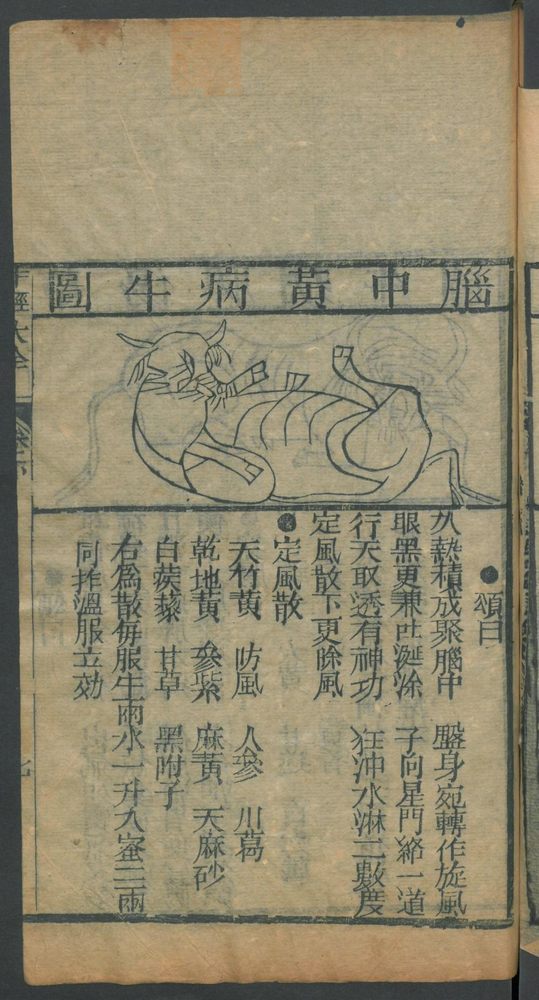 腦中黃病牛圖
頌曰
久熱積成聚腦中 盤身宛轉作旋風
眼黑更兼吐涎涂 子向星門綹一道
行天取透有神功 狂沖水淋二數度
定風散下更除風
定風散
天竹黃 防風 人參 川葛
乾地黃 參紫 麻黃 天麻砂
白蒺藜 甘草 黑附子
右為散每服生兩水一升入蜜二兩
同拌溫服立効
經大全